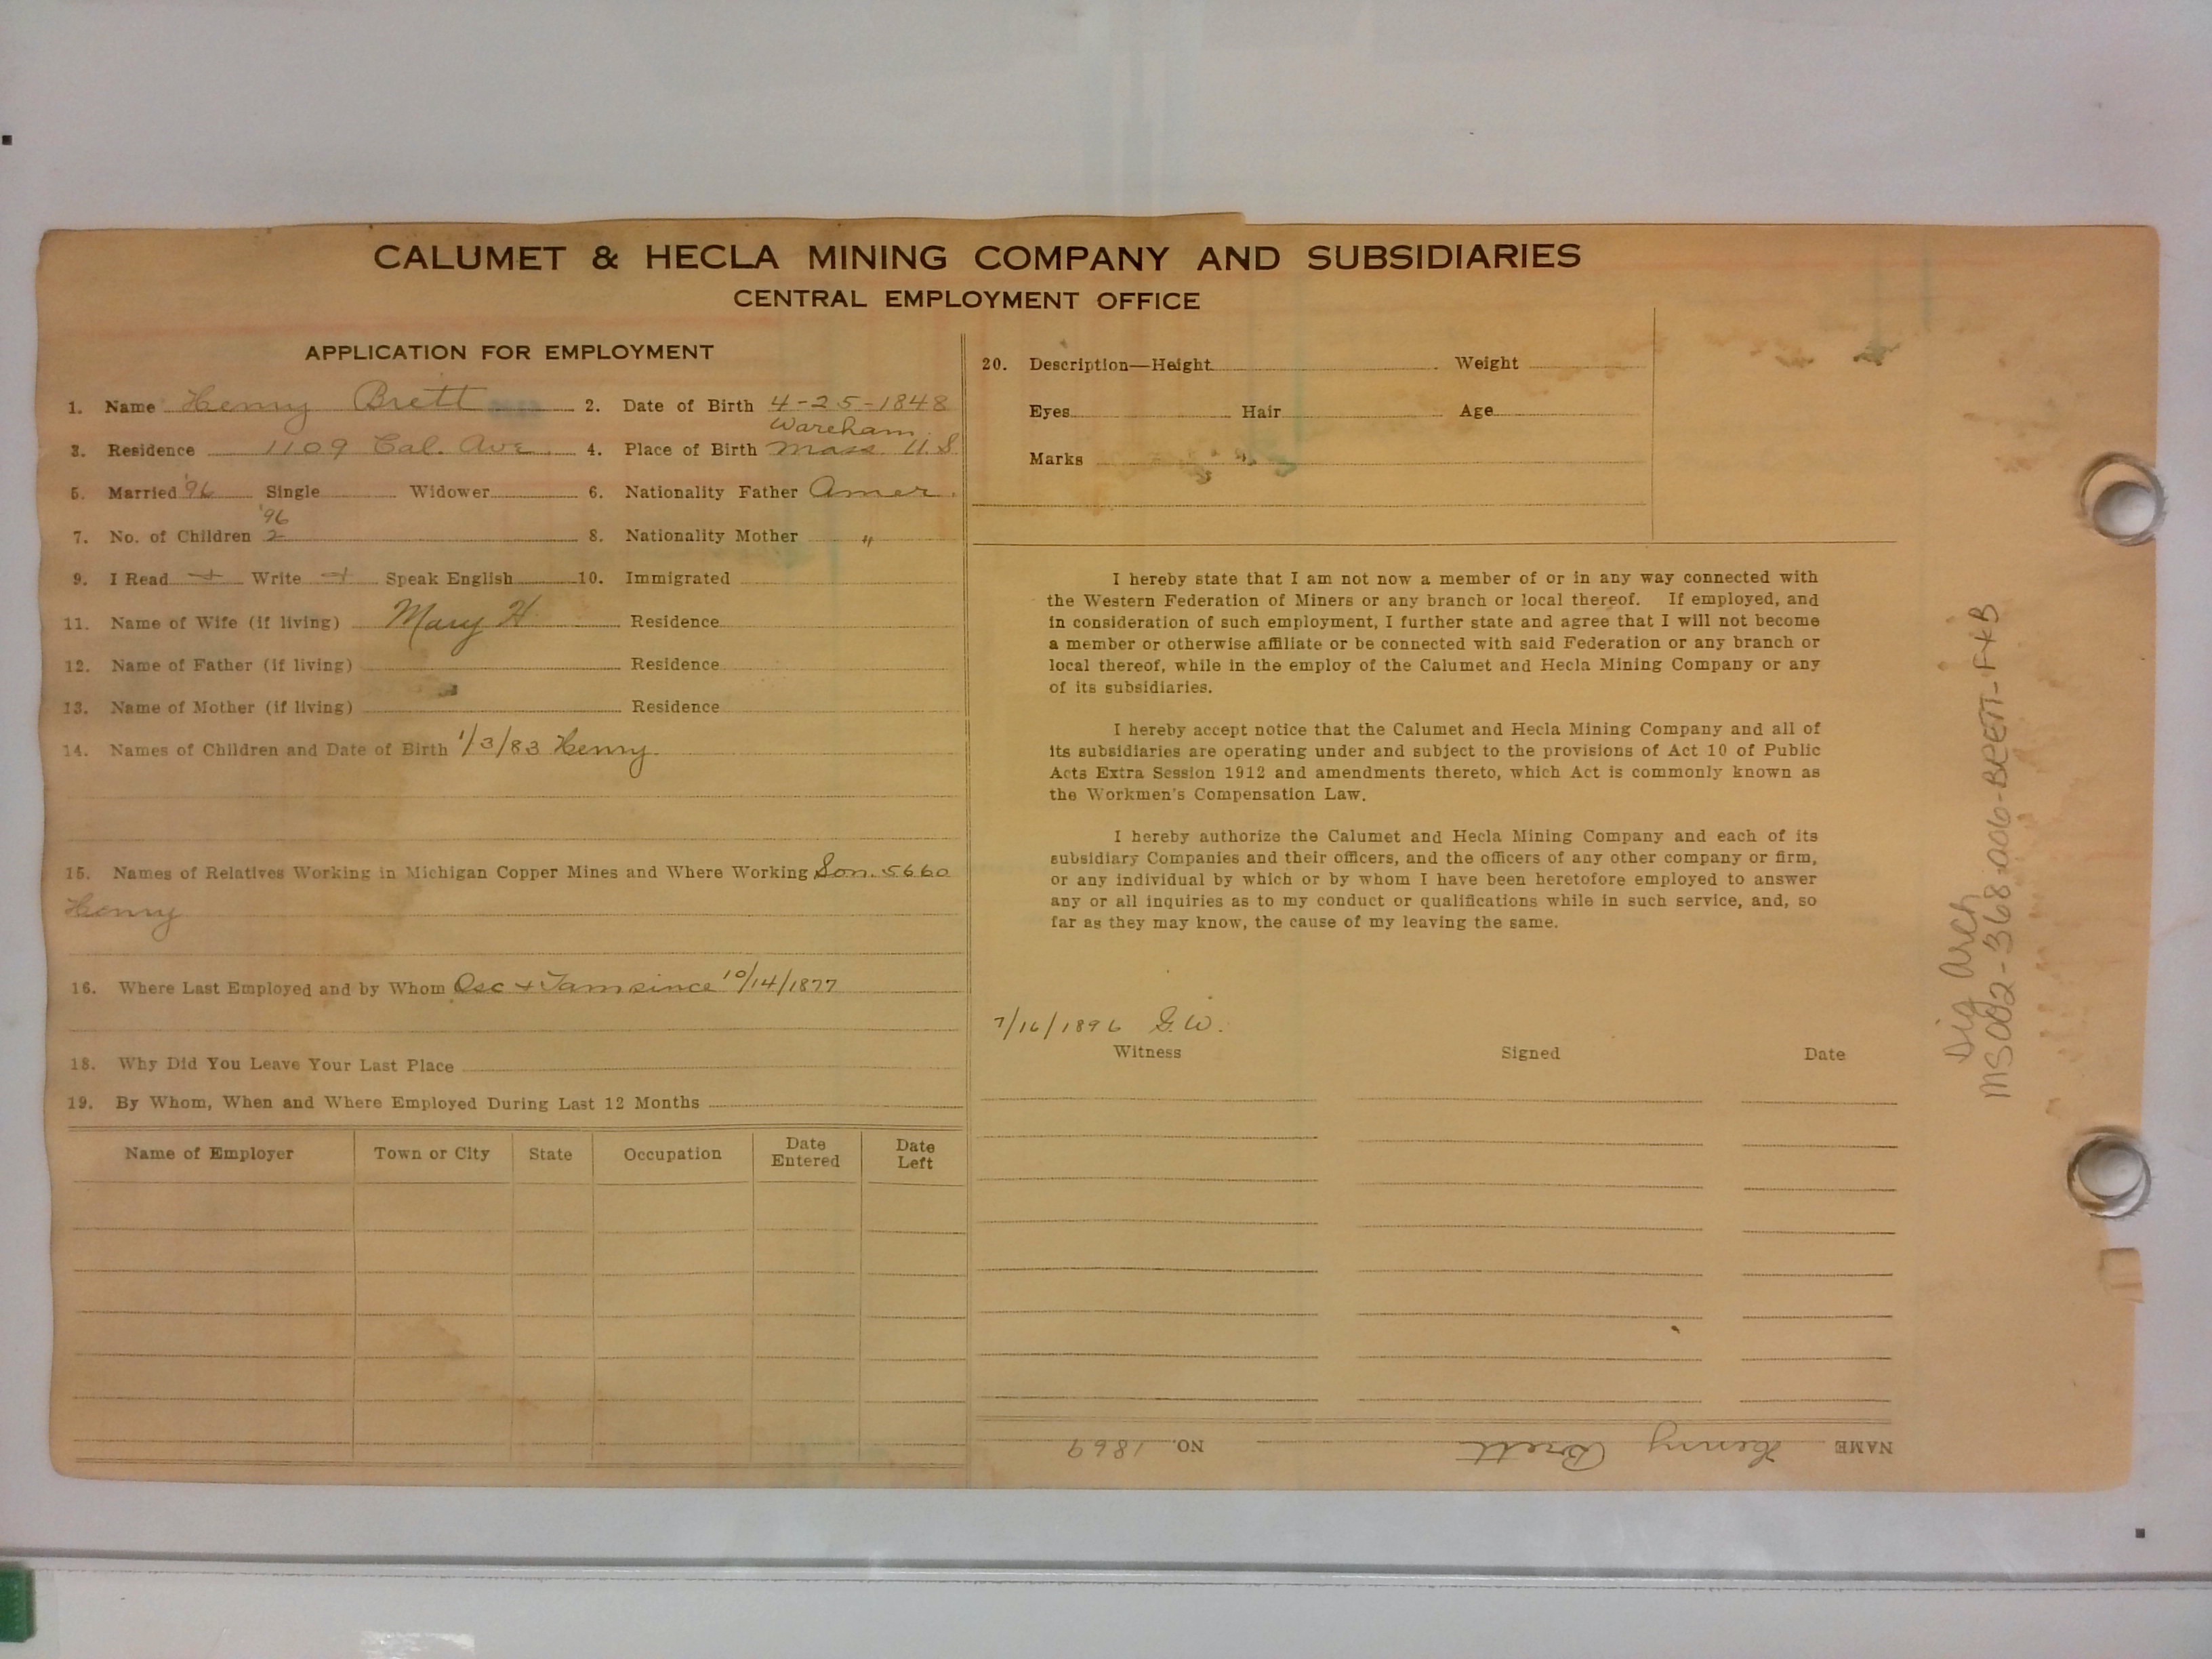 CALUMET & HECLA MINING COMPANY AND SUBSIDIARIES
CENTRAL EMPLOYMENT OFFICE
APPLICATION FOR EMPLOYMENT
1. Name Henry Brett 2. Date of Birth 4-25-1848
Wareham
3. Residence 1109 Cal. Ave. 4. Place of Birth Mass. U.S.
5. Married '96 Single Widower 6. Nationality Father Amer.
'96
7. No. of Children 2 8. Nationality Mother "
9. I Read + Write + Speak English 10. Immigrated
11. Name of Wife (if living) Mary H Residence
12. Name of Father (if living) Residence
13. Name of Mother (if living) Residence
14. Names of Children and Date of Birth 1/3/83 Henry.
15. Names of Relatives Working in Michigan Copper Mines and Where Working Son. 5660
Henry
16. Where Last Employed and by Whom Osc + Tam since 10/14/1877
18. Why Did You Leave Your Last Place
19. By Whom, When and Where Employed During Last 12 Months
Name of Employer Town or City State Occupation Date Entered Date Left
20. Description—Height Weight
Eyes Hair Age
Marks
I hereby state that I am not now a member of or in any way connected with
the Western Federation of Miners or any branch or local thereof. If employed, and
in consideration of such employment, I further state and agree that I will not become
a member or otherwise affiliate or be connected with said Federation or any branch or
local thereof, while in the employ of the Calumet and Hecla Mining Company or any
of its subsidiaries.
I hereby accept notice that the Calumet and Hecla Mining Company and all of
its subsidiaries are operating under and subject to the provisions of Act 10 of Public
Acts Extra Session 1912 and amendments thereto, which Act is commonly known as
the Workmen's Compensation Law.
I hereby authorize the Calumet and Hecla Mining Company and each of its
subsidiary Companies and their officers, and the officers of any other company or firm,
or any individual by which or by whom I have been heretofore employed to answer
any or all inquiries as to my conduct or qualifications while in such service, and, so
far as they may know, the cause of my leaving the same.
7/16/1896 G.W.
Witness Signed Date
NAME Henry Brett NO. 1869
Dig Arch
MS002-368-006-BRETT-F+B